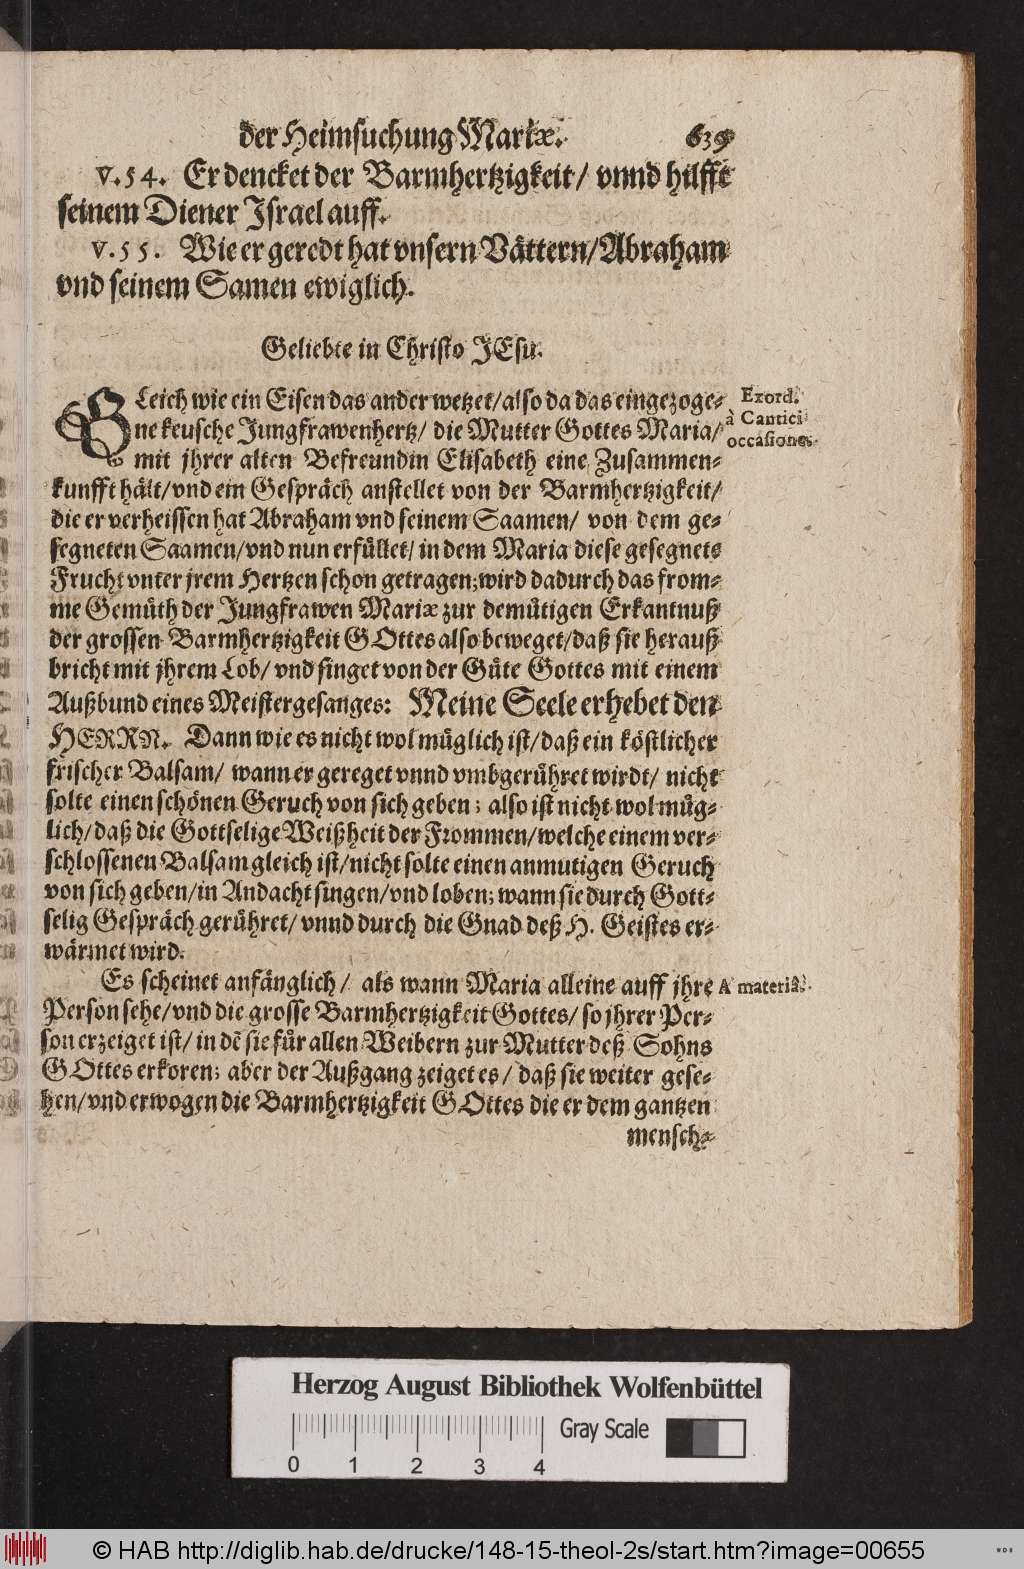 der Heimsuchung Mariæ. 639
V. 54. Er dencket der Barmhertzigkeit/ vnnd hilfft
seinem Diener Israel auff.
V. 55. Wie er geredt hat vnsern Vättern/ Abraham
vnd seinem Samen ewiglich.
Geliebte in Christo JEsu.
GLeich wie ein Eisen das ander wetzet/ also da das eingezoge-
ne keusche Jungfrawenhertz/ die Mutter Gottes Maria/
mit jhrer alten Befreundin Elisabeth eine Zusammen-
kunfft hält/ vnd ein Gespräch anstellet von der Barmhertzigkeit/
die er verheissen hat Abraham vnd seinem Saamen/ von dem ge-
segneten Saamen/ vnd nun erfüllet/ in dem Maria diese gesegnete
Frucht vnter jrem Hertzen schon getragen; wird dadurch das from-
me Gemüth der Jungfrawen Mariæ zur demütigen Erkantnuß
der grossen Barmhertzigkeit GOttes also beweget/ daß sie herauß
bricht mit jhrem Lob/ vnd singet von der Güte Gottes mit einem
Außbund eines Meistergesanges: Meine Seele erhebet den
HERRN. Dann wie es nicht wol müglich ist/ daß ein köstlicher
frischer Balsam/ wann er gereget vnnd vmbgerühret wirdt/ nicht
solte einen schönen Geruch von sich geben; also ist nicht wol müg-
lich/ daß die Gottselige Weißheit der Frommen/ welche einem ver-
schlossenen Balsam gleich ist/ nicht solte einen anmutigen Geruch
von sich geben/ in Andacht singen/ vnd loben; wann sie durch Gott-
selig Gespräch gerühret/ vnnd durch die Gnad deß H. Geistes er-
wärmet wird.
Exord.
à Cantici
occasione.
Es scheinet anfänglich/ als wann Maria alleine auff jhre
Person sehe/ vnd die grosse Barmhertzigkeit Gottes/ so jhrer Per-
son erzeiget ist/ in dẽ sie für allen Weibern zur Mutter deß Sohns
GOttes erkoren; aber der Außgang zeiget es/ daß sie weiter gese-
hen/ vnd erwogen die Barmhertzigkeit GOttes die er dem gantzen
A materiâ.
mensch-
Herzog August Bibliothek Wolfenbüttel
Gray Scale
0 1 2 3 4
© HAB http://diglib.hab.de/drucke/148-15-theol-2s/start.htm?image=00655